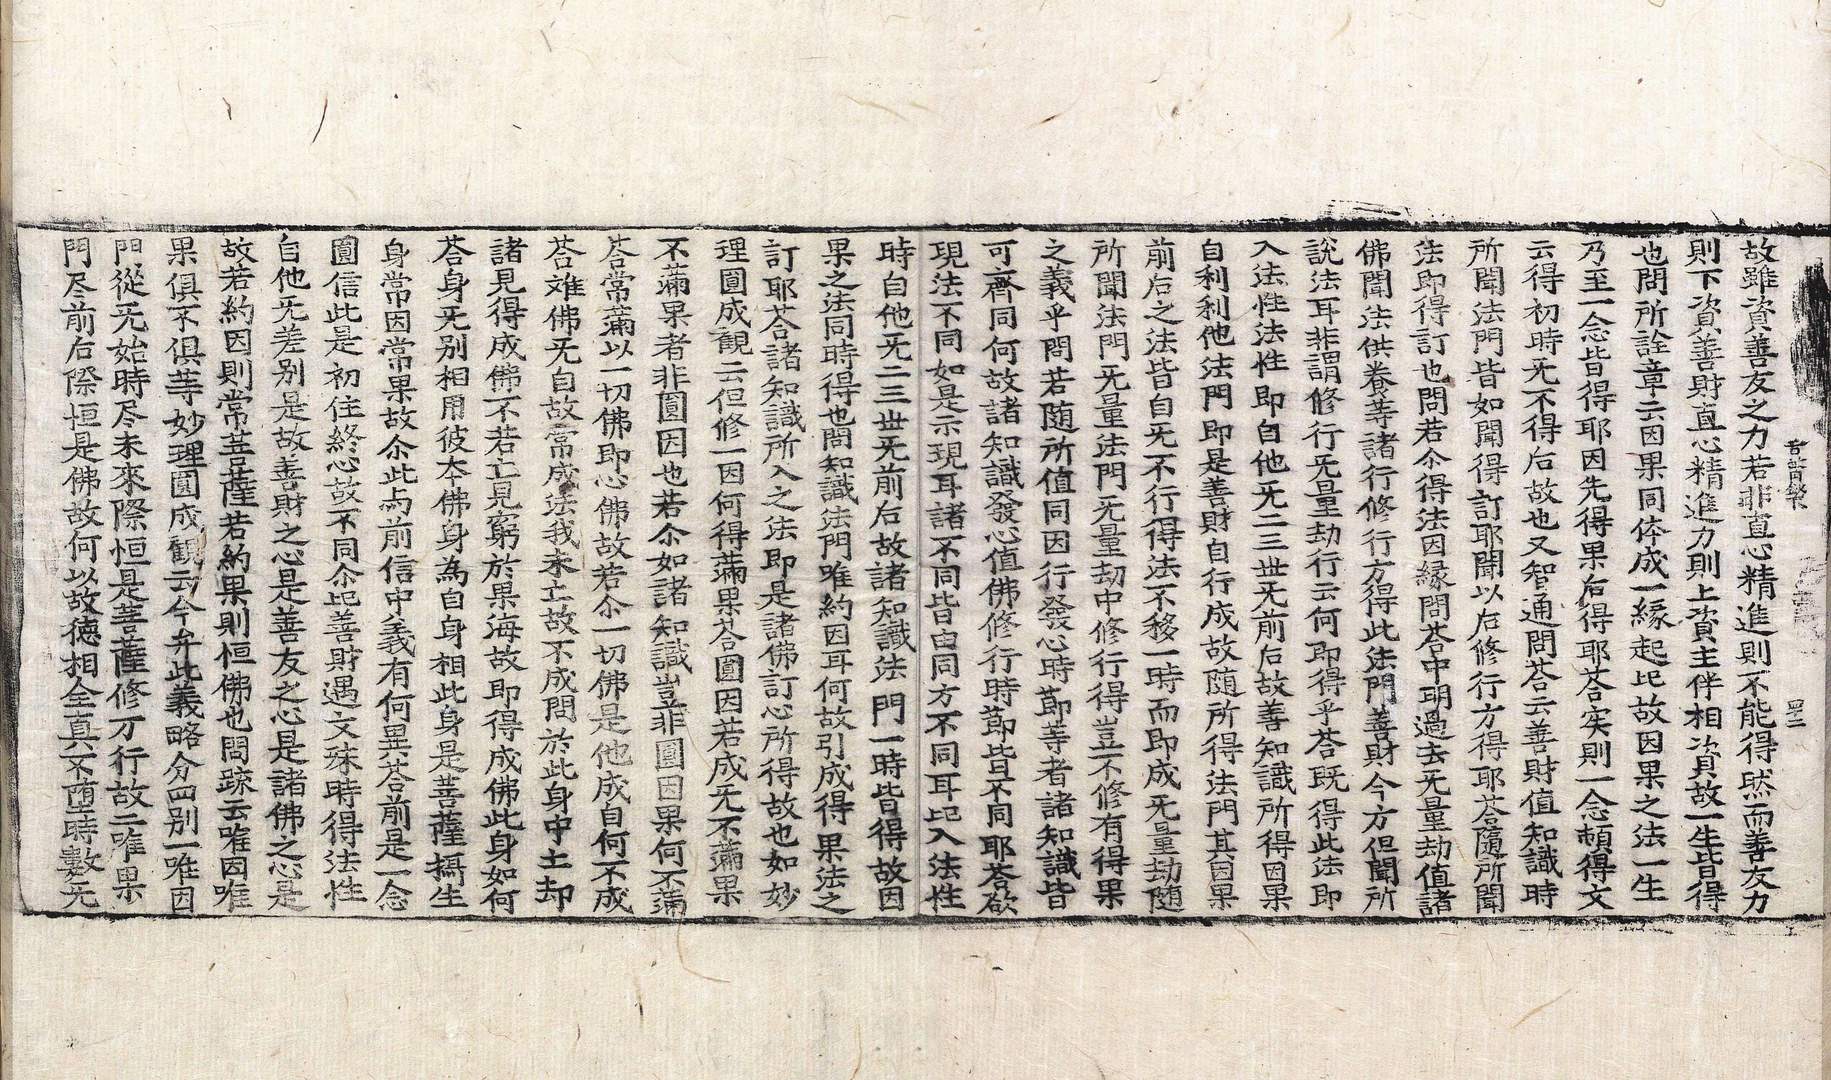 故雖資善友之力若非直心精進則不能得然而善友力
則下資善財直心精進力則上資主伴相資故一生皆得
也問所詮章云因果同体成一緣起比故因果之法一生
乃至一念皆得耶因先得果后得耶荅实則一念頓得文
云得初時旡不得后故也又智通問荅云善財值知識時
所聞法門皆如聞得訂耶聞以后修行方得耶荅隨所聞
法即得訂也問若尒得法因縁問荅中明過去旡量劫值諸
佛聞法供養䓁諸行修行方得此法門善財今方但聞所
說法耳非謂修行旡量劫行云何即得乎荅既得此法即
入法性法性即自他旡二三世旡前后故善知識所得因果
自利利他法門即是善財自行成故随所得法門其因果
前后之法皆自旡不行得法不移一時而即成旡量劫随
所聞法門旡量法門旡量劫中修行得豈不修有得果
之義乎問若随所值同因行發心時節䓁者諸知識皆
可齊同何故諸知識發心值佛修行時節皆不同耶荅欲
現法不同如是示現耳諸不同皆由同方不同耳比入法性
時自他旡二三世旡前后故諸知識法門一時皆得故因
果之法同時得也問知識法門唯約因耳何故引成得果法之
訂耶荅諸知識所入之法即是諸佛訂心所得故也如妙
理圓成観云但修一因何得滿果荅圓因若成旡不滿果
不滿果者非圓因也若尒如諸知識豈非圓因果何不滿
荅常滿以一切佛即心佛故若尒一切佛是他成自何不成
荅难佛旡自故常成法我未亡故不成問於此身中土却
諸見得成佛不若亡見窮於果海故即得成佛此身如何
荅身旡别相用彼本佛身為自身相此身是菩薩攝生
身常因常果故尒此与前信中義有何異荅前是一念
圓信此是初住終心故不同尒比善財遇文殊時得法性
自他旡差别是故善財之心是善友之心是諸佛之心是
故若約因則常菩薩若約果則恒佛也問疏云唯因唯
果俱不俱䓁妙理圓成観云今弁此義略分四别一唯因
門從旡始時尽未來際恒是菩薩修万行故二唯果
門尽前后際恒是佛故何以故德相全真不堕時數旡